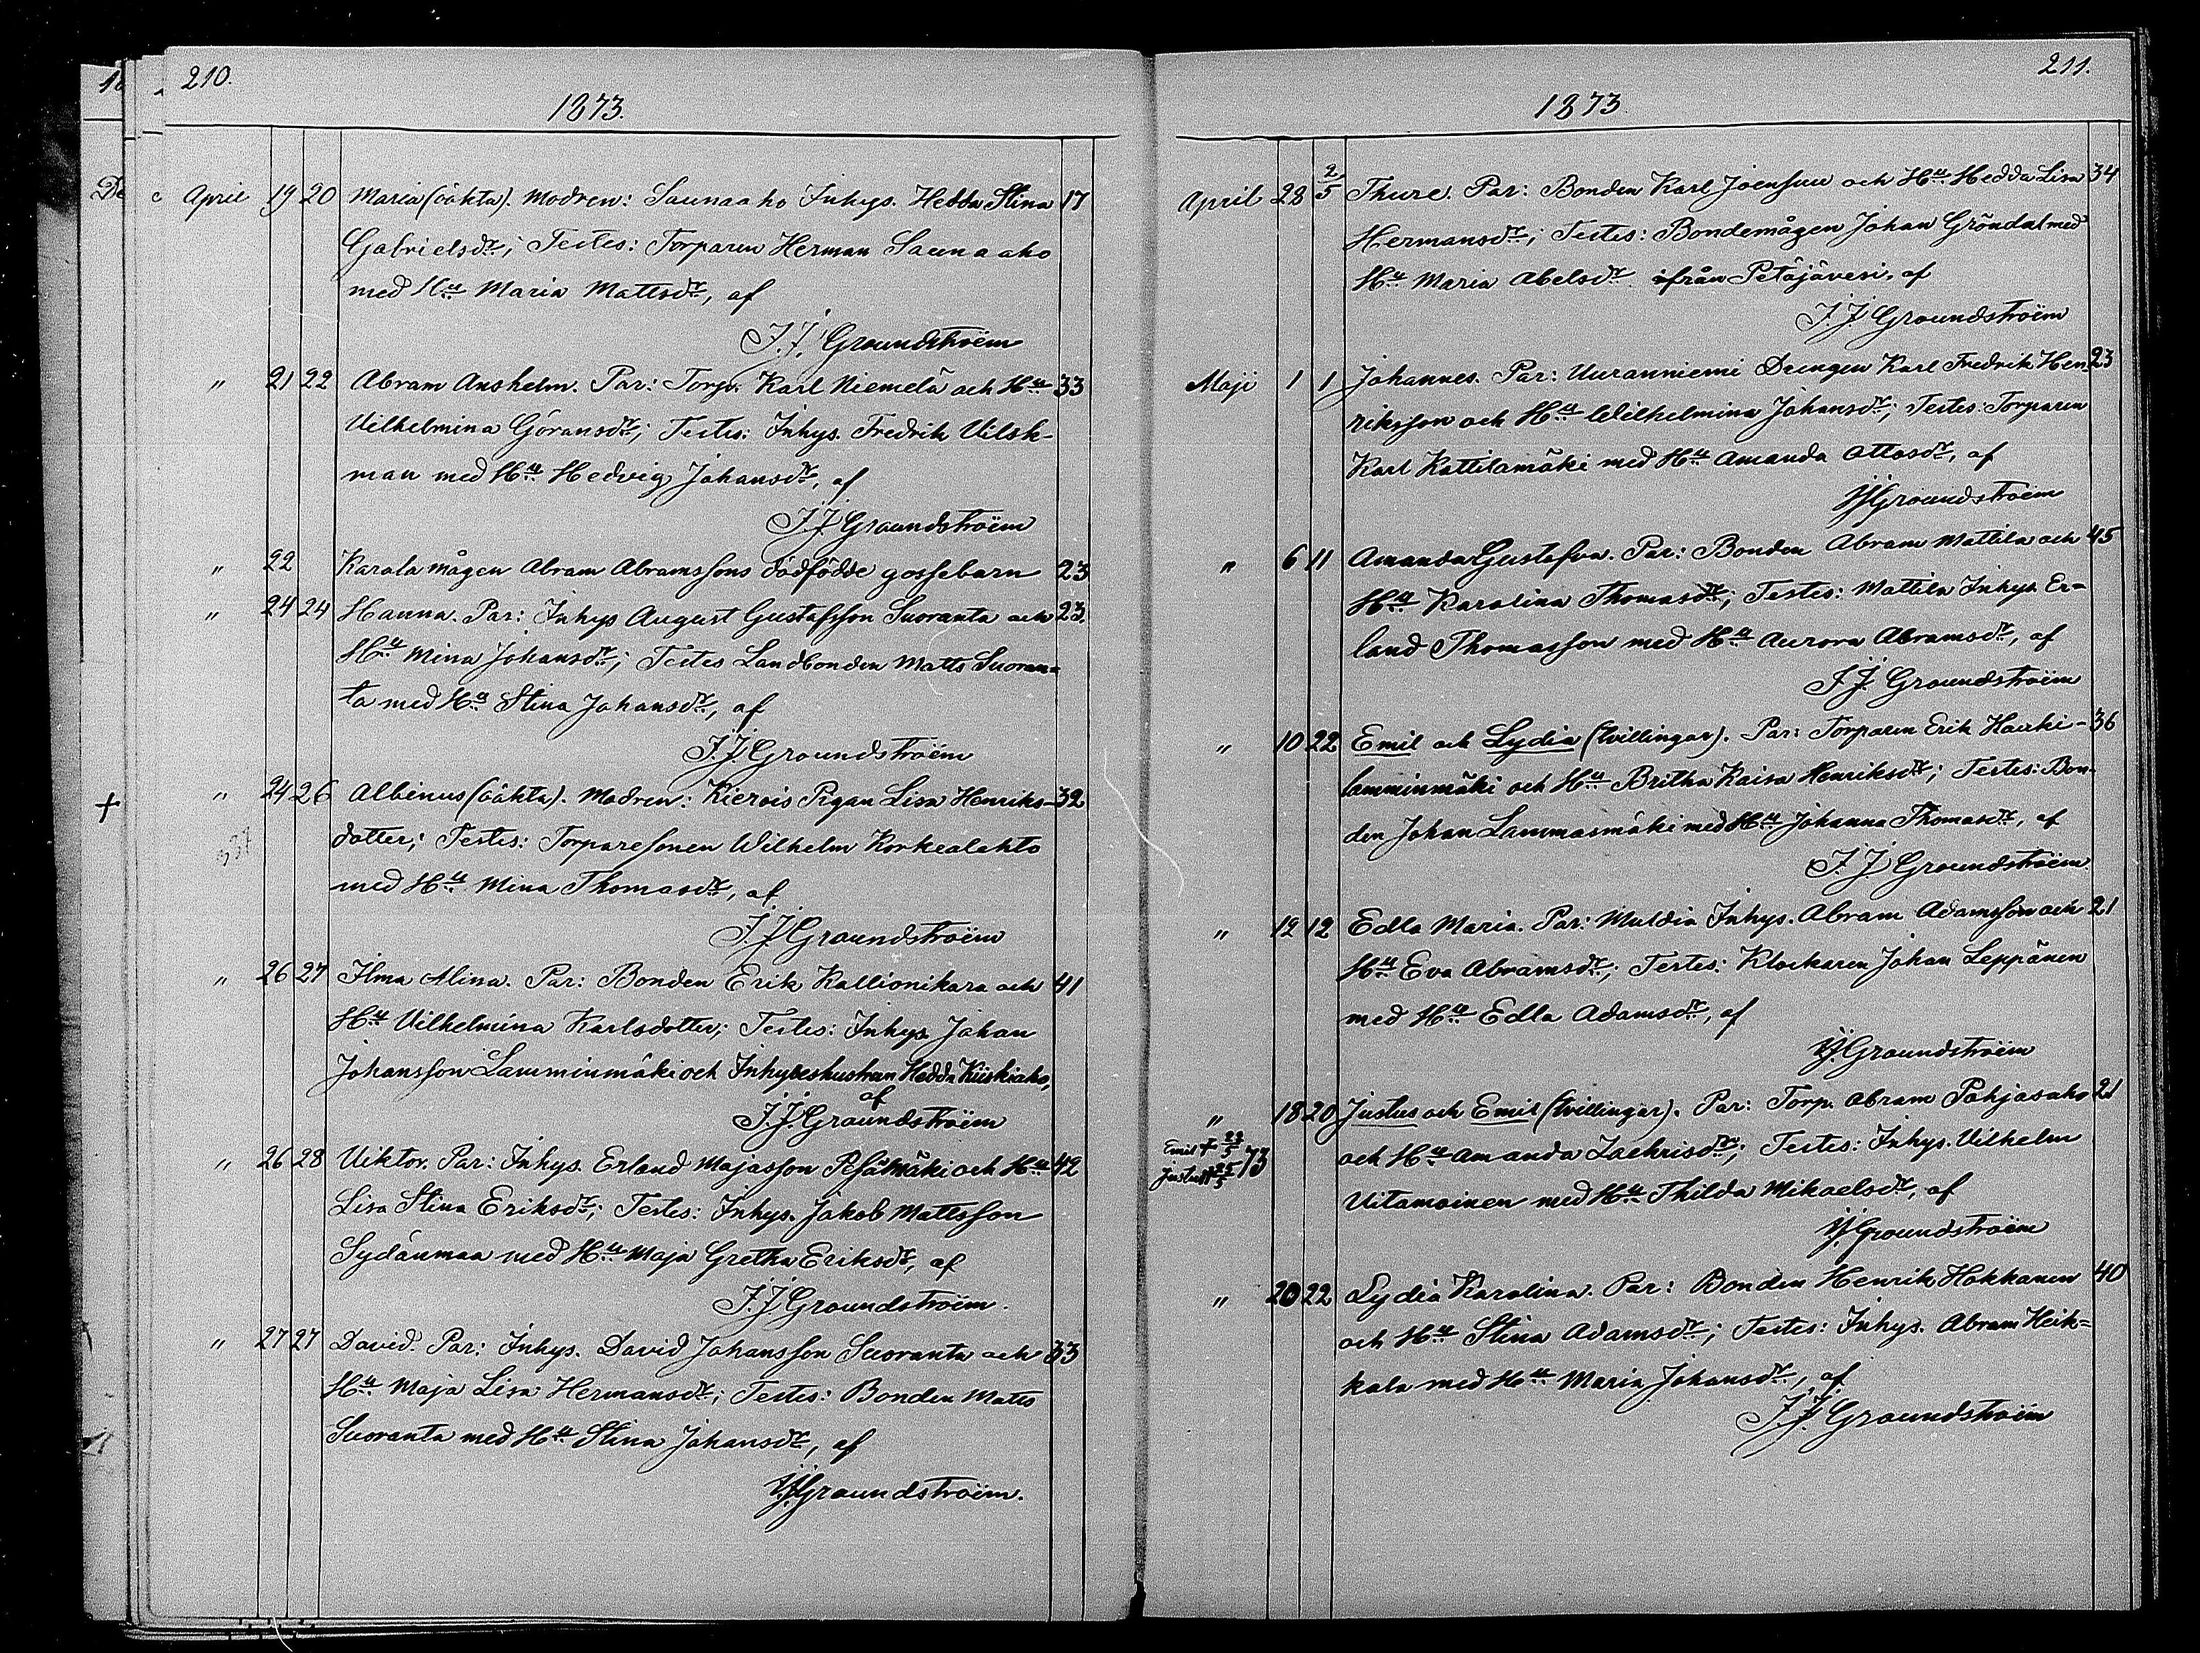 210.
1873.
April 19 20 Maria (oäkta). Modren: Saunaaho Inhys. Hedda Stina 17
Gabrielsdr; Testes: Torparen Herman Saunaaho
med Hu Maria Mattsdr, af
J. J. Groundstroëm
" 21 22 Abram Anshelm. Par: Torp. Karl Niemelä och Hu 33
Vilhelmina Göransdr; Testes: Inhys. Fredrik Vilsk-
man med Hu Hedvig Johansdr, af
J. J. Groundstroëm
" 22 Karala mågen Abram Abramssons dödfödde gossebarn 23
" 24 24 Hanna. Par: Inhys August Gustafsson Suoranta och 23.
Hu Mina Johansdr; Testes Landbonden Matts Suoran=
ta med Hu Stina Johansdr, af
J. J. Groundstroëm
+ " 24 26 Albinus (oäkta). Modren: Kierois Pigan Lisa Henriks- 32
dotter; Testes: Torparesonen Wilhelm Korkealahto
med Hu Mina Thomasdr, af
J. J. Groundstroëm
" 26 27 Ilma Alina. Par: Bonden Erik Kallionikara och 41
Hu Vilhelmina Karlsdotter; Testes: Inhys. Johan
Johansson Lamminmäki och Inhyseshustrun Hedda Kiiskiaho,
af
J. J. Groundstroëm
" 26 28 Viktor. Par: Inhys. Erland Majasson Pesämäki och Hu 42
Lisa Stina Eriksdr; Testes: Inhys. Jakob Mattsson
Sydänmaa med Hu Maja Gretha Eriksdr, af
J. J. Groundstroëm.
" 27 27 David. Par: Inhys. David Johansson Suoranta och 33
Hu Maja Lisa Hermansdr; Testes: Bonden Matts
Suoranta med Hu Stina Johansdr, af
J. J. Groundstroëm.
211.
1873
April 28 2/5 Thure. Par: Bonden Karl Joensuu och Hu Hedda Lisa 34
Hermansdr; Testes: Bondemågen Johan Gröndal med
Hu Maria Abelsdr ifrån Petäjävesi, af
J. J. Groundstroëm
Maji 1 1 Johannes. Par: Uuranniemi Drengen Karl Fredrik Hen 23
riksson och Hu Wilhelmina Johansdr; Testes: Torparen
Karl Kattilamäki med Hu Amanda Ottosdr, af
J. J. Groundstroëm
" 6 11 Amanda Gustafva. Par: Bonden Abram Mattila och 45
Hu Karolina Thomasdr; Testes: Mattila Inhys. Er-
land Thomasson med Hu Aurora Abramsdr, af
J. J. Groundstroëm
" 10 22 Emil och Lydia (tvillingar). Par: Torparen Erik Hauki- 36
lamminmäki och Hu Britha Kaisa Henriksdr; Testes: Bon-
den Johan Lammasmäki med Hu Johanna Thomasdr, af
J. J. Groundstroëm.
" 12 12 Edla Maria. Par: Muldia Inhys. Abram Adamsson och 21
Hu Eva Abramsdr; Testes: Klockaren Johan Leppänen
med Hu Edla Adamsdr, af
J. J. Groundstroëm
" 18 20 Justus och Emil (tvillingar). Par: Torp. Abram Pohjasaho 21
Emil + 23/5 Justus + 25/5 73
och Hu Amanda Zachrisdr; Testes: Inhys. Vilhelm
Uitamoinen med Hu Thilda Mikaelsdr, af
J. J. Groundstroëm
" 20 22 Lydia Karolina. Par: Bonden Henrik Hokkanen 40
och Hu Stina Adamsdr; Testes: Inhys. Abram Heik=
kala med Hu Maria Johansdr, af
J. J. Groundstroëm